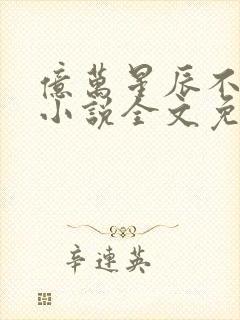 億萬星辰不
小說全文免
辛連英